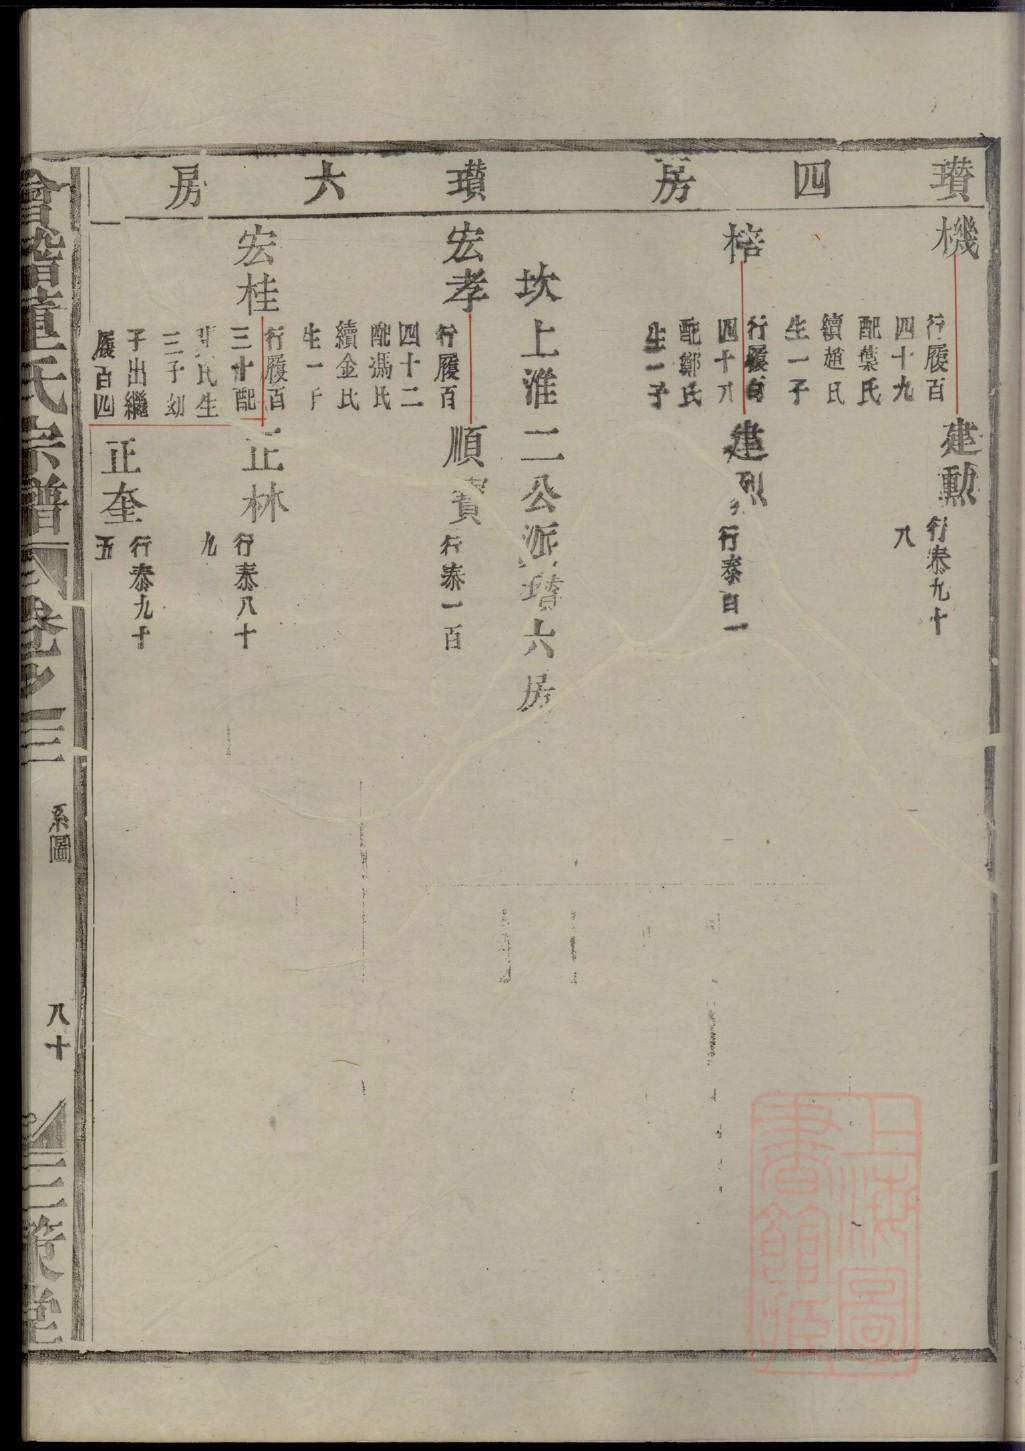 瓚四房
機
行履百
四十九
配葉氏
續趙氏
生一子
建勲
行泰九十
八
棓
行履百
四十八
配鄭氏
生一子
建烈
行泰百一
坎上淮二公派瓚六房
瓚六房
宏孝
行履百
四十二
配馮氏
續金氏
生一子
順寶
行泰一百
宏桂
行履百
三十配
氏生
三子幼
子出繼
履百四
正林
行泰八十
九
正奎
行泰九十
五
會稽童氏宗譜
卷之三
系圖
八十
三策堂
上海圖書館藏